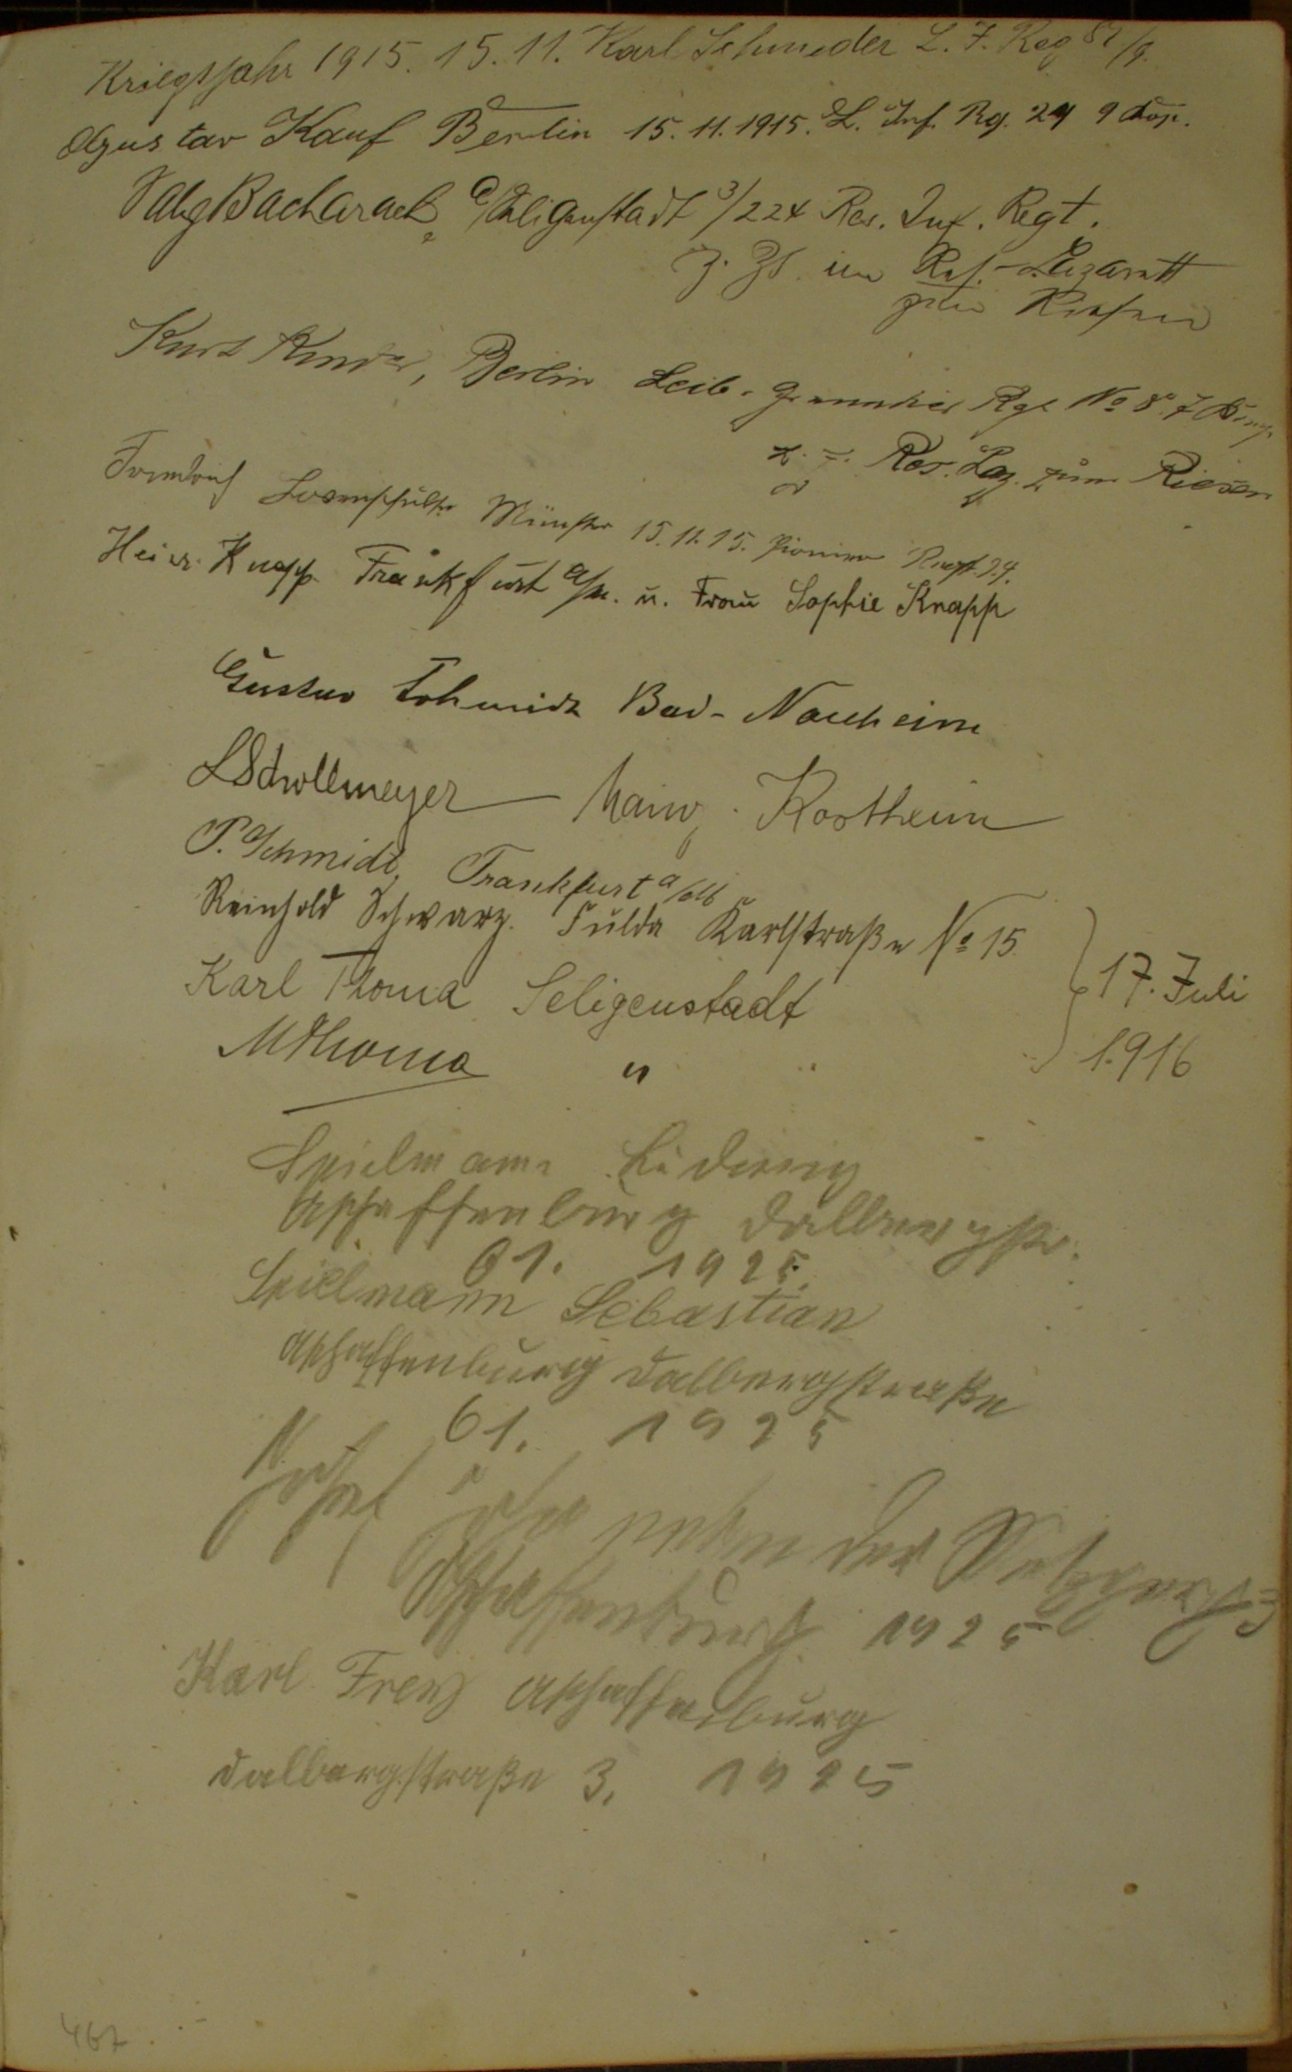 Kriegsjahr 1915. 15. 11. Karl Schneder L. I. Reg 81/9.
Gustav Kauf Berlin 15. 11. 1915. L. Inf. Rg. 24 9 Kop.
Bacharach Seligenstadt 3/224 Res. Inf. Regt.
z. Zt. im Res.-Lazarett
zum Riesen
Kurt, Berlin Leib-Grenadier Rgt No 8. 7 Komp
Res. Laz. zum Riesen
Friedrich Münster 15. 11. 15. Pionier Regt. 24.
Heinr. Knapp Frankfurt a/M. u. Frau Sophie Knapp
Gustav Schmidt Bad-Nauheim
L Schollmeyer Mainz. Kostheim
P. Schmidt, Frankfurt a/M
Reinhold Schwarz. Fulda Karlstraße No 15
Karl Thoma Seligenstadt
M Thoma "
17. Juli
1916
Spielmann Ludwig
Aschaffenburg Dalbergstr.
61. 1925.
Spielmann Sebastian
Aschaffenburg Dalbergstraße
61. 1925
Josef
Aschaffenburg 1925
Karl Frenz Aschaffenburg
Dalbergstraße 3, 1925
467